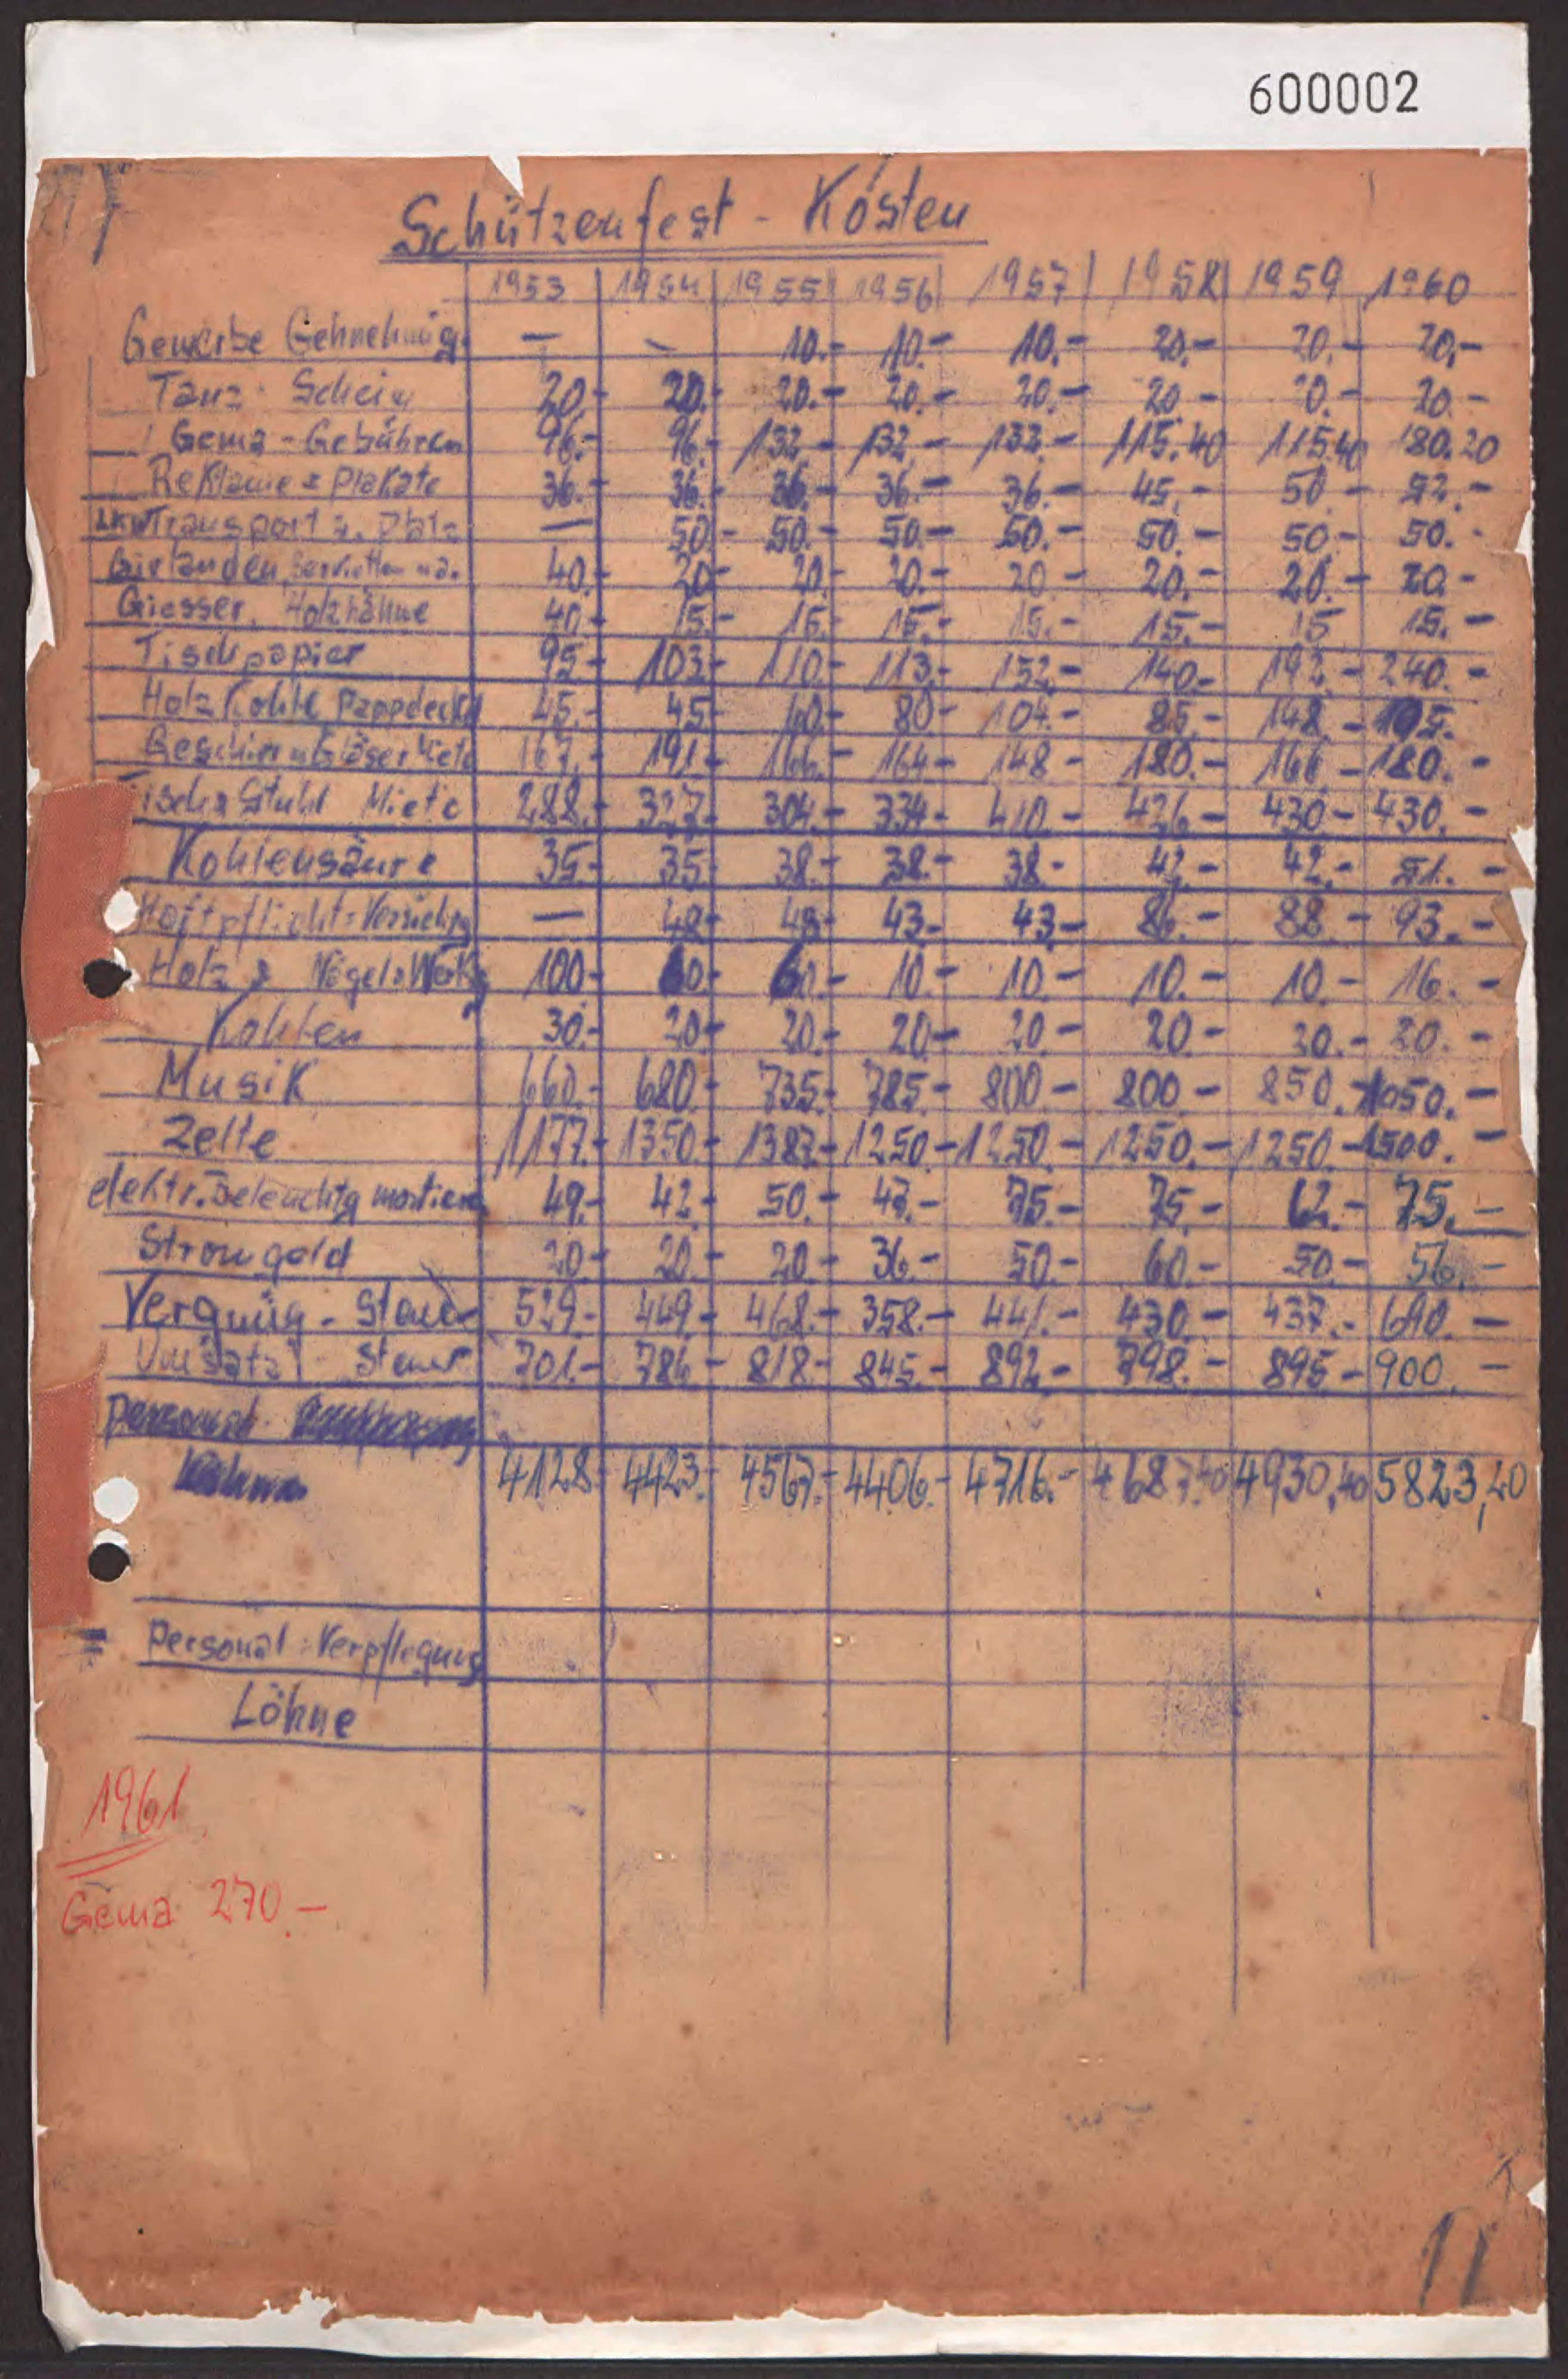 600002
Schützenfest - Kosten
1953 1954 1955 1956 1957 1958 1959 1960
Gewerbe Gehnehmig — — 10.- 10.- 10.- 20.- 20.- 20.-
Tanz-Schein 20.- 20.- 20.- 20.- 20.- 20.- 20.- 20.-
Gema-Gebühren 96.- 96.- 132.- 132.- 132.- 115.40 115.40 180.20
Reklame & Plakate 36.- 36.- 36.- 36.- 36.- 45.- 50.- 52.-
LKW Transport z. Platz — 50.- 50.- 50.- 50.- 50.- 50.- 50.-
Girlanden, Servietten u.a. 40.- 20.- 20.- 20.- 20.- 20.- 20.- 20.-
Giesser, Holzhähne 40.- 15.- 15.- 15.- 15.- 15.- 15 15.-
Tischpapier 95.- 103.- 110.- 113.- 152.- 140.- 192.- 240.-
Holz Kohle Pappdeckel 45.- 45.- 60.- 80.- 104.- 85.- 148.-
Geschirr u Gläser Miete 167.- 191.- 166.- 164.- 148.- 180.- 166.- 180.-
Tisch & Stuhl Miete 288.- 327.- 304.- 334.- 410.- 426.- 430.- 430.-
Kohlensäure 35.- 35.- 38.- 38.- 38.- 42.- 42.- 51.-
Haftpflicht=Versichrg — 48.- 48.- 43.- 43.- 86.- 88.- 93.-
Holz & Nägel & Werkz 100.- 60.- 60.- 10.- 10.- 10.- 10.- 16.-
Kohlen 30.- 20.- 20.- 20.- 20.- 20.- 20.- 20.-
Musik 660.- 680.- 735.- 785.- 800.- 800.- 850.- 1050.-
Zelte 1177.- 1350.- 1383.- 1250.- 1250.- 1250.- 1250.- 1500.-
elektr. Beleuchtg montieren 49.- 42.- 50.- 43.- 75.- 75.- 62.- 75.-
Stromgeld 20.- 20.- 20.- 36.- 50.- 60.- 50.- 56.-
Vergnüg-Steuer 529.- 449.- 468.- 358.- 441.- 430.- 437.- 690.-
Umsatz-Steuer 701.- 786.- 818.- 845.- 892.- 798.- 895.- 900.-
Personal
4128.- 4423.- 4567.- 4406.- 4716.- 4687.40 4930,40 5823,20
Personal-Verpflegung
Löhne
1961
Gema 270.-